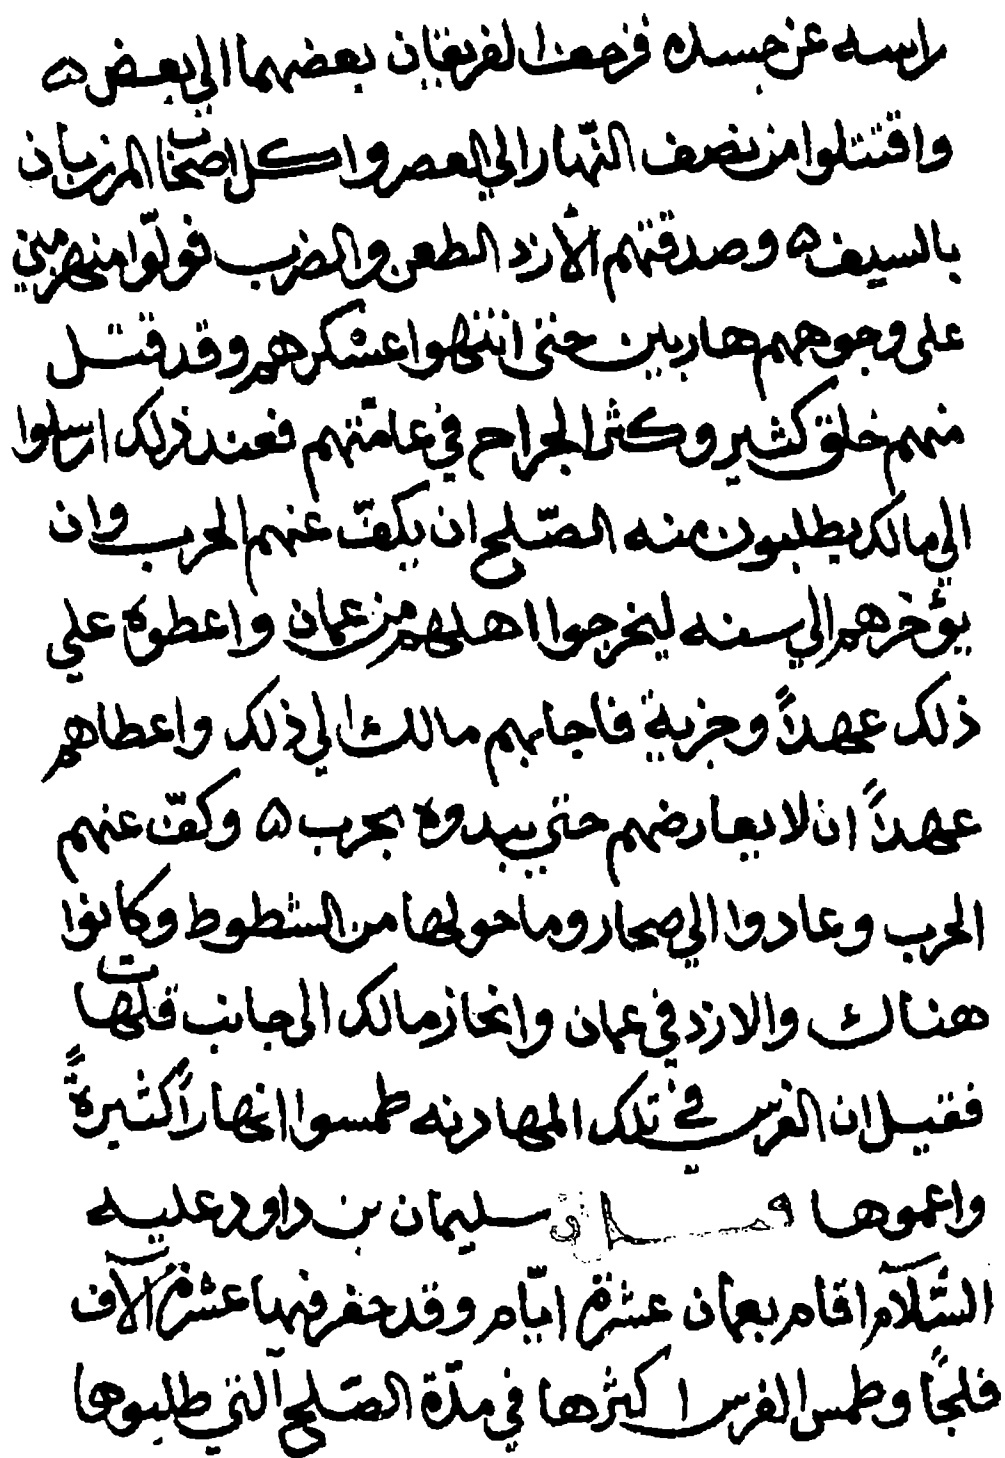 راسه عن جسده فرجعا الفريقان بعضهما الي بعض ۵
واقتتلوا من نصف النّهار الي العصر واكل اصحاب المرزبان
بالسيف ۵ وصدقتهم الأزد الطعن والضرب فولّوا منهزمين
على وجوههم هاربين حتى انتهوا عسكرهم وقد قتل
منهم خلق كثير وكثر الجراح في عامّتهم فعند ذلك ارسلوا
الي مالك يطلبون منه الصّلح ان يكفّ عنهم الحرب وان
يؤخرهم الي سنه ليخرجوا اهلهم من عمان واعطوه علي
ذلك عهداً وجزية فاجابهم مالك الي ذلك واعطاهم
عهداً ان لا يعارضهم حتي يبدوه بحرب ۵ وكفّ عنهم
الحرب وعادوا الي صحار وما حولها من الشطوط وكانوا
هناك والازد في عمان وانحاز مالك الى جانب قلهات
فقيل ان الفرس في تلك المهادنه طمسوا انهاراً كثيرةً
واعموها سليمان بن داود عليه
السّلام اقام بعمان عشرة ايّام وقد حفر فيها عشرة آلاف
فلجاً وطمس الفرس اكثرها في مدّة الصّلح التي طلبوها